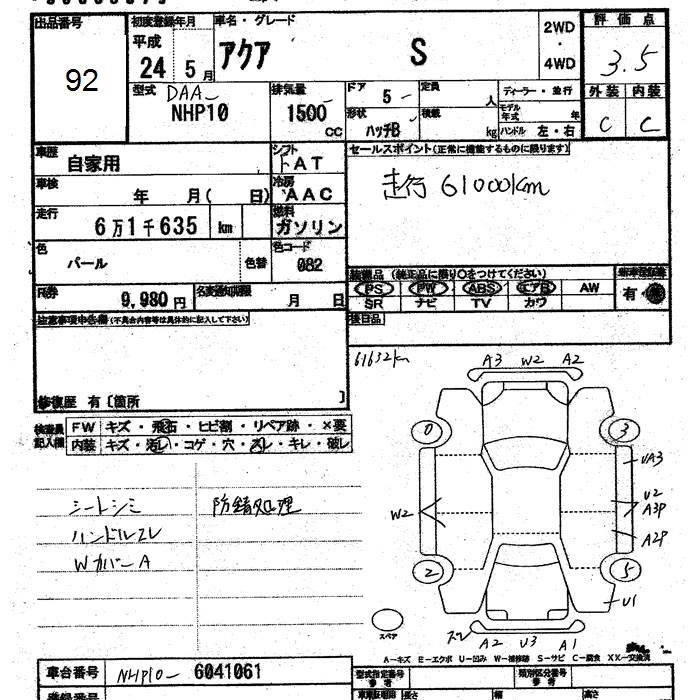 出品番号
92
初度登録年月
平成
24 5月
車名・グレード
アクア S
2WD
・
4WD
評価点
3.5
外装 内装
C C
型式 DAA-
NHP10
排気量
1500 CC
ドア 5
形状 ハッチB
定員 人
積載 kg
ディーラー・並行
モデル年式 年
ハンドル 左・右
車歴 自家用
シフト
AT
車検 年 月( 日)
冷房
AAC
走行 6万1千635 km
燃料
ガソリン
色 パール 色替
色コード
082
R券 9,980円
名変通知期限 月 日
セールスポイント(正常に機能するものに限ります)
走行 61000km
装備品 (純正品に限り○をつけてください)
PS PW ABS エアB AW
SR ナビ TV カワ
有
後日品
注意事項申告欄(不具合内容等は具体的に記入して下さい)
修復歴 有〔箇所 〕
検査員
記入欄
FW キズ・飛石・ヒビ割・リペア跡・×要
内装 キズ・汚レ・コゲ・穴・スレ・キレ・破レ
61632km
A3 W2 A2
0 3
UA3
W2
U2
A3P
A2P
2 5
U1
スペア
スレ A2 U3 A1
A-キズ E-エクボ U-凹み W-補修跡 S-サビ C-腐食 XX-交換済
シートシミ 防錆処理
ハンドルスレ
WカバーA
車台番号 NHP10- 6041061
型式指定番号
類別区分番号
長さ 幅 高さ